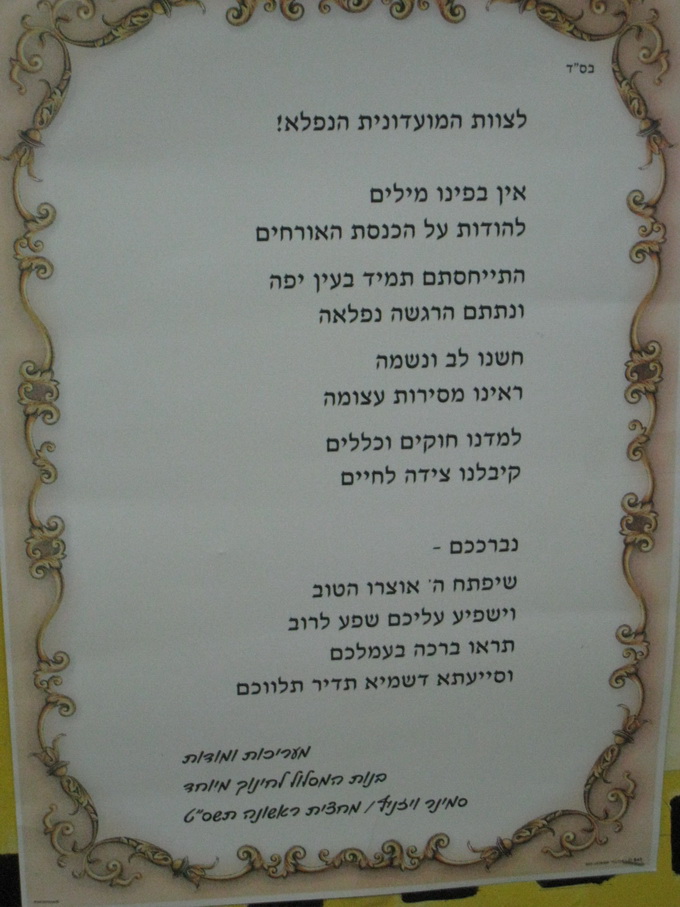 בס"ד
לצוות המועדונית הנפלא!
אין בפינו מילים
להודות על הכנסת האורחים
התייחסתם תמיד בעין יפה
ונתתם הרגשה נפלאה
חשנו לב ונשמה
ראינו מסירות עצומה
למדנו חוקים וכללים
קיבלנו צידה לחיים
נברככם -
שיפתח ה' אוצרו הטוב
וישפיע עליכם שפע לרוב
תראו ברכה בעמלכם
וסייעתא דשמיא תדיר תלווכם
מעריכות ומודות
בנות המסלול לחינוך מיוחד
סמינר ויזניץ / מחצית ראשונה תשס"ט